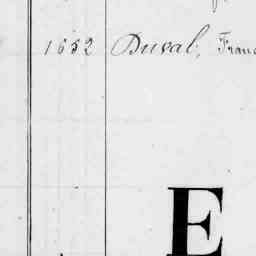 1652 Duval, Franc
E